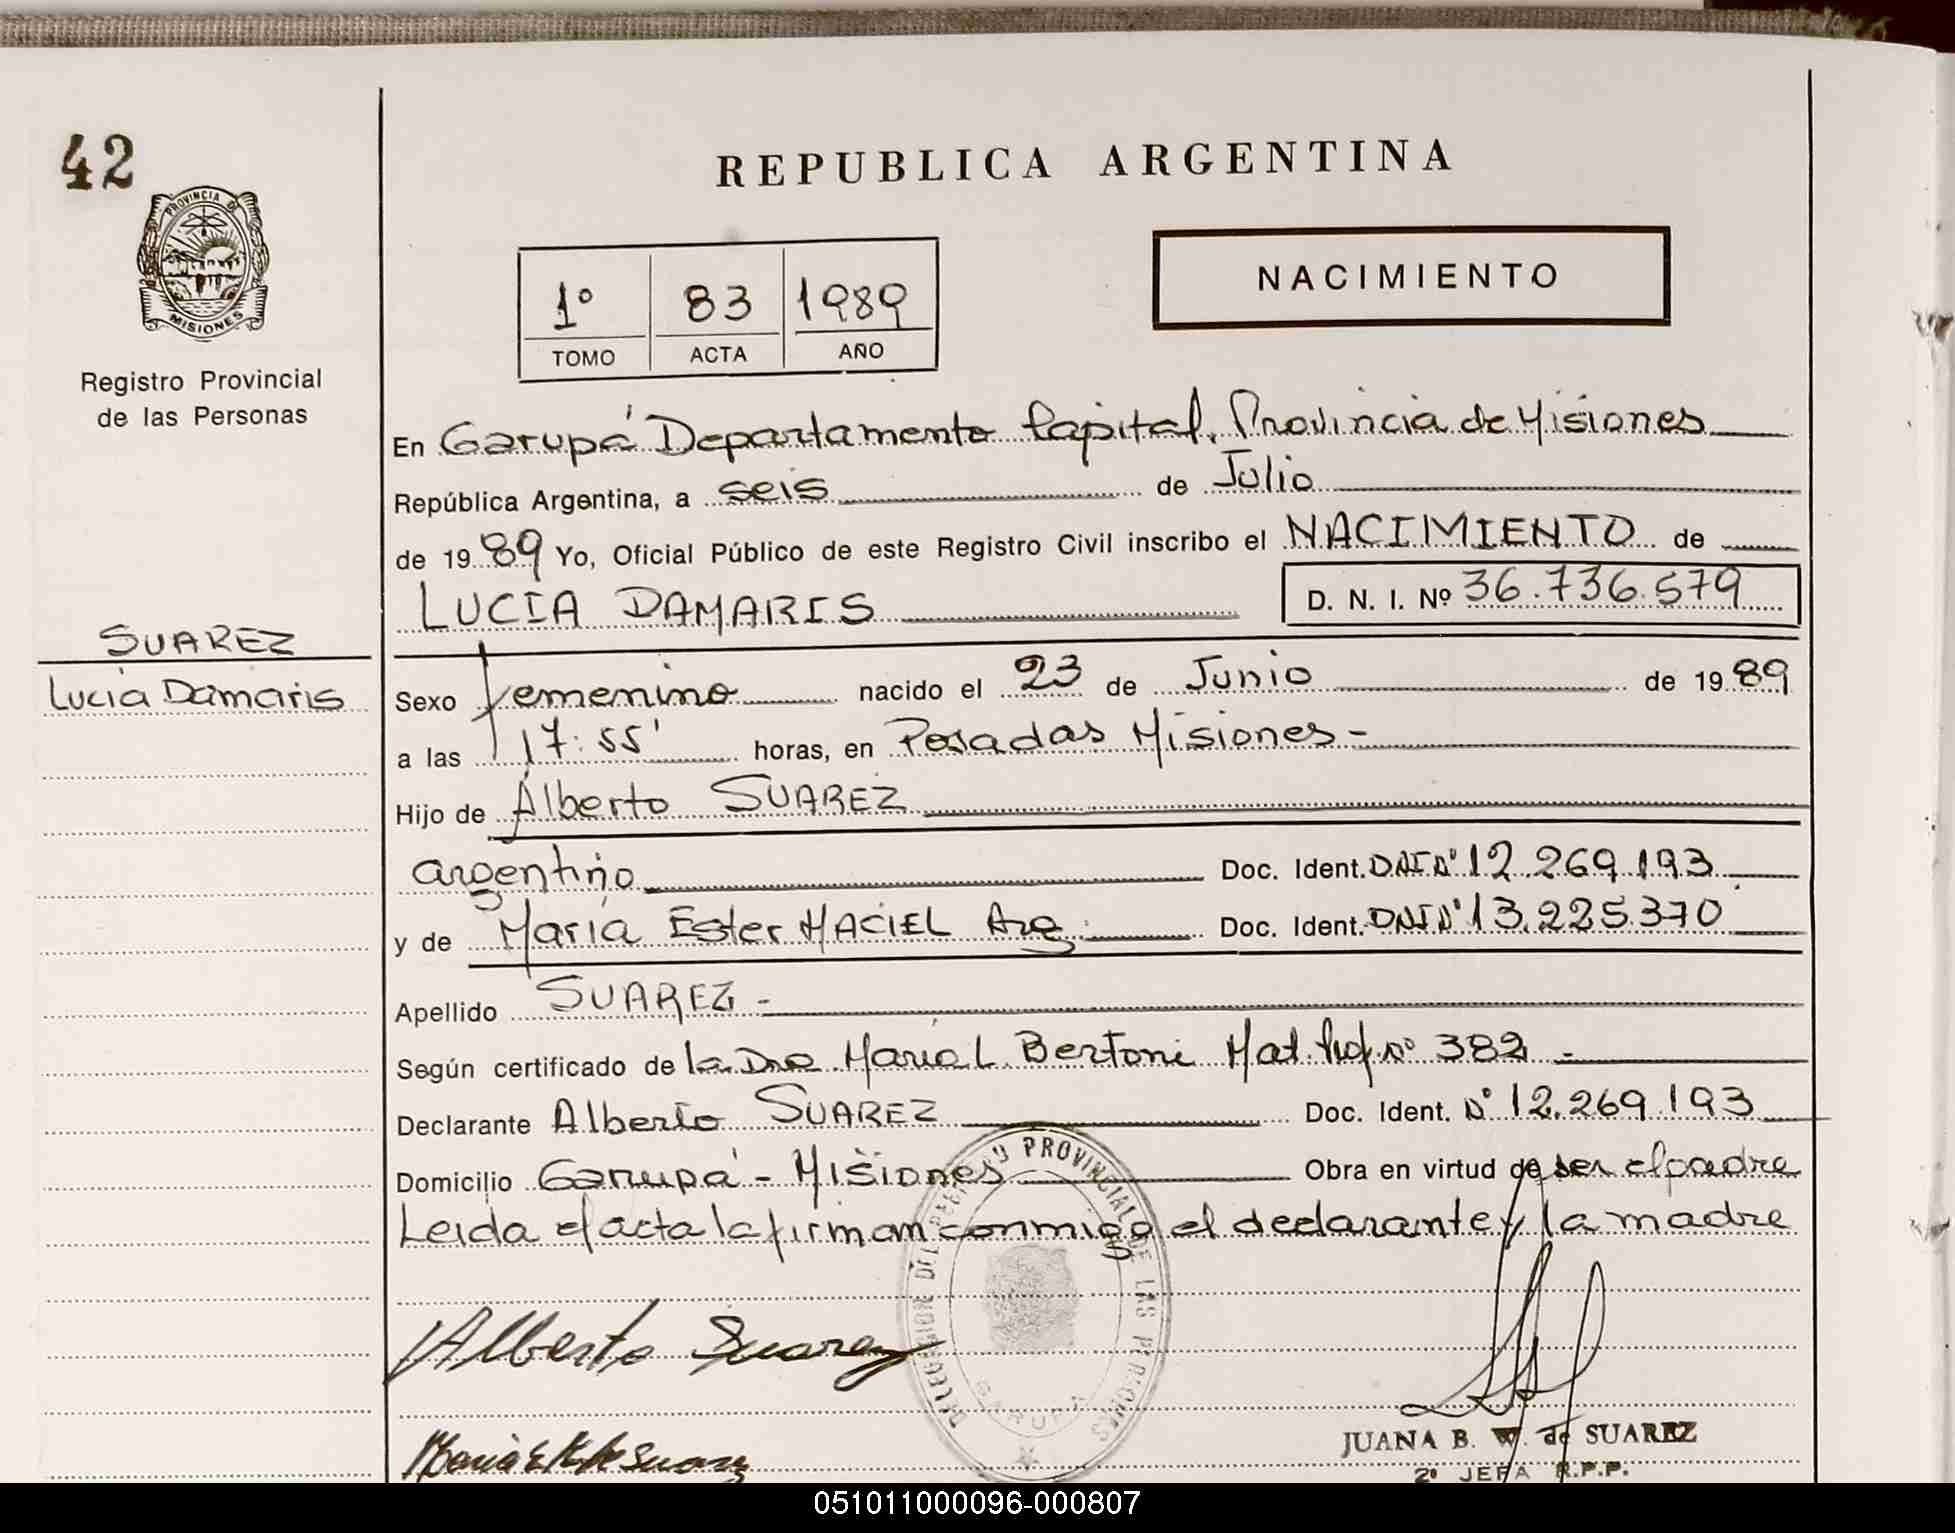 42
PROVINCIA DE
MISIONES
Registro Provincial
de las Personas
SUAREZ
Lucia Damaris
REPUBLICA ARGENTINA
1º 83 1989
TOMO ACTA AÑO
NACIMIENTO
En Garupá Departamento Capital, Provincia de Misiones
República Argentina, a seis de Julio
de 1989 Yo, Oficial Público de este Registro Civil inscribo el NACIMIENTO de
LUCIA DAMARIS D. N. I. Nº 36.736.579
Sexo femenino nacido el 23 de Junio de 1989
a las 17:55' horas, en Posadas Misiones-
Hijo de Alberto SUAREZ
argentino Doc. Ident. DNI Nº 12.269.193
y de María Ester MACIEL Arg. Doc. Ident. DNI Nº 13.225.370
Apellido SUAREZ-
Según certificado de la Dra María L. Bertoni Mat. Prof. Nº 382-
Declarante Alberto SUAREZ Doc. Ident. Nº 12.269.193
Domicilio Garupá - Misiones Obra en virtud de ser el padre
Leida el acta la firman conmigo el declarante y la madre
DELEGACION DEL REGISTRO PROVINCIAL DE LAS PERSONAS
GARUPA
Alberto Suarez
JUANA B. W. de SUAREZ
2º JEFA R.P.P.
051011000096-000807